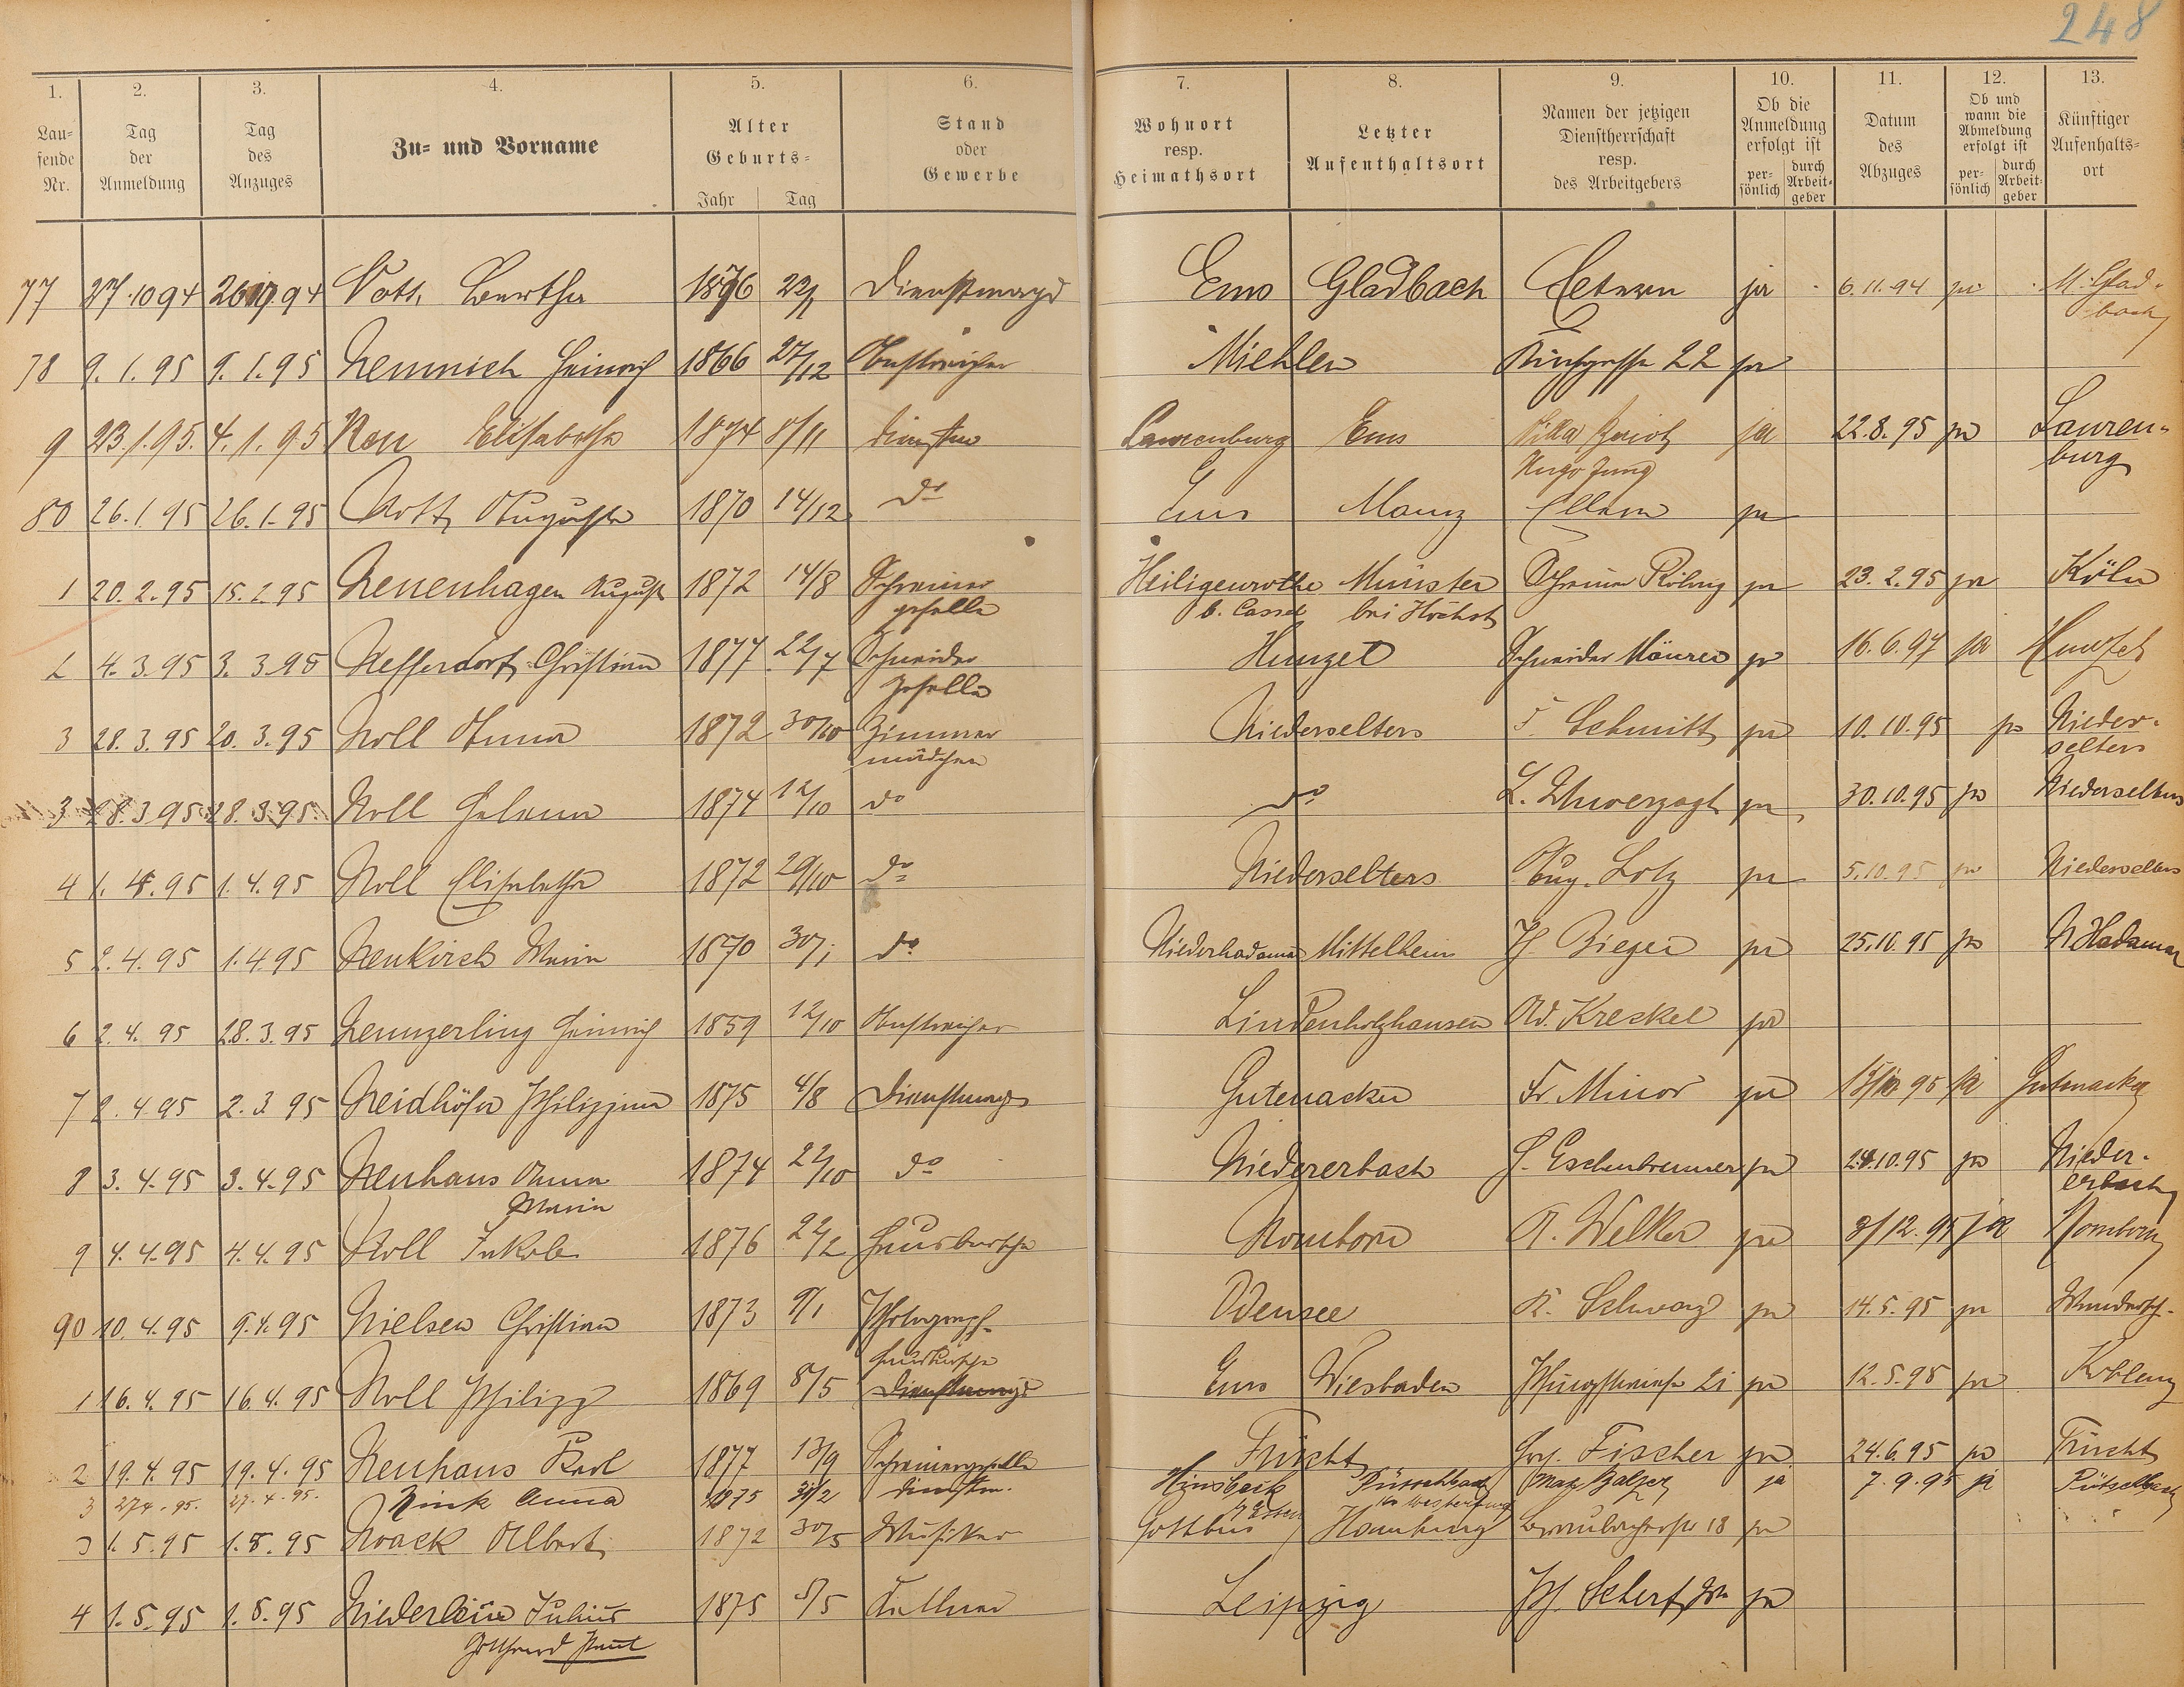 248
1. 2. 3. 4. 5. 6. 7. 8. 9. 10. 11. 12. 13.
Laufende Nr. Tag der Anmeldung Tag des Anzuges Zu- und Vorname Alter Geburts- Jahr Tag Stand oder Gewerbe Wohnort resp. Heimathsort Letzter Aufenthaltsort Namen der jetzigen Dienstherrschaft resp. des Arbeitgebers Ob die Anmeldung erfolgt ist persönlich durch Arbeitgeber Datum des Abzuges Ob und wann die Abmeldung erfolgt ist persönlich durch Arbeitgeber Künftiger Aufenthaltsort
77 27.10 94 26 10 94 Bertha 1876 22/1 Dienstmagd Ems Gladbach ja 6.11.94 ja M. Gladbach
78 9.1.95 9.1.95 Heinrich 1866 27/12 Anstreicher Miehlen 22 ja
9 23.1.95. 4.1.95 Elisabetha 1874 8/11 Laurenburg Ems Villa ja 22.8.95 ja Laurenburg
Hugo Jung
80 26.1.95 26.1.95 Nott Auguste 1870 14/12 do Ems Mainz ja
1 20.2.95 15.2.95 Neuenhagen August 1872 14/8 Schreiner geselle Heiligenrothe b. Cassel Münster bei Höchst Schreiner ja 23.2.95 ja Köln
2 4.3.95 3.3.95 Neffendorf Christian 1877 22/7 Schneider Geselle Hunzel Schneider Mäurer ja 16.6.97 ja Hunzel
3 28.3.95 20.3.95 Noll Anna 1872 30/10 Zimmer mädchen Niederselters F. Schmitt ja 10.10.95 ja Niederselters
3 28.3 95 28.3.95 Noll Helena 1874 12/10 do do L. Unverzagt ja 30.10.95 ja Niederselters
4 1.4.95 1.4.95 Noll Elisabetha 1872 29/10 do Niederselters Aug. Lotz ja 5.10.95 ja Niederselters
5 2.4.95 1.4.95 Neukirch Maria 1870 30/1 do Niederhadamar Mittelheim H. Bieger ja 25.10.95 ja N Hadamar
6 2.4.95 28.3.95 Heinrich 1859 12/10 Anstreicher Lindenholzhausen Ad. Kreckel ja
7 2.4 95 2.3 95 Neidhöfer Philippine 1875 4/8 Dienstmagd Gutenacker Fr Minor ja 15/10 95 ja Gutenacker
8 3.4.95 3.4.95 Neuhaus Anna Maria 1874 22/10 do Niedererbach H. Eschenbrenner ja 24.10.95 ja Niedererbach
9 4.4.95 4.4.95 Noll Jakob 1876 22/2 Hausbursche Nomborn A. Welker ja 8/12.95 ja Nomborn
90 10.4.95 9.4.95 Nielsen Christian 1873 9/1 Photograph Odensee K. Schwarz ja 14.5.95 ja
1 16.4.95 16.4.95 Noll Philipp 1869 8/5 Hausbursche Ems Wiesbaden 21 ja 12.5.95 ja Koblenz
2 19.4.95 19.4.95 Neuhaus Karl 1877 13/9 Schreinergeselle Frücht Fischer ja 24.6.95 ja Frücht
3 27.4.95. 27.4.95. Nink Anna 1875 Hinsbeck Pütschbach Max Balzer ja 7.9.95 ja Pütschbach
3 1.5.95 1.5.95 Noack Albert 1872 30/5 Musiker Cottbus Homburg 18 ja
4 1.5.95 1.5.95 Julius 1875 5/5 Kellner Leipzig ja
Gotthard Paul